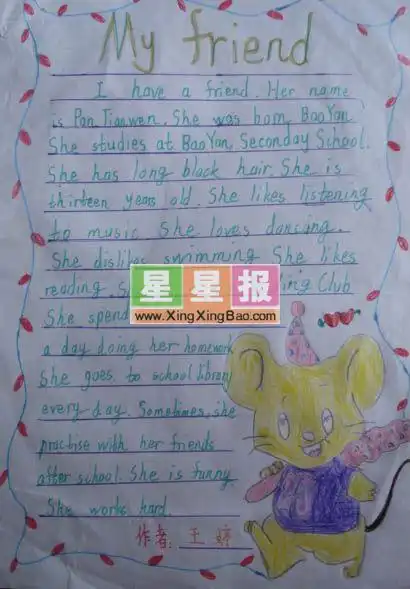 My friend
I have a friend. Her name
is Pan Tianwen. She was born BaoYan
She studies at BaoYan Seconday School.
She has long black hair. She is
thirteen years old. She likes listening
to music. She loves dancing.
She dislikes swimming. She likes
reading. ing Club
She spend
星星报
www.XingXingBao.com
a day doing her homework
She goes to school library
every day. Sometimes, she
practise with her friends
after school. She is funny.
She works hard.
作者: 王婷